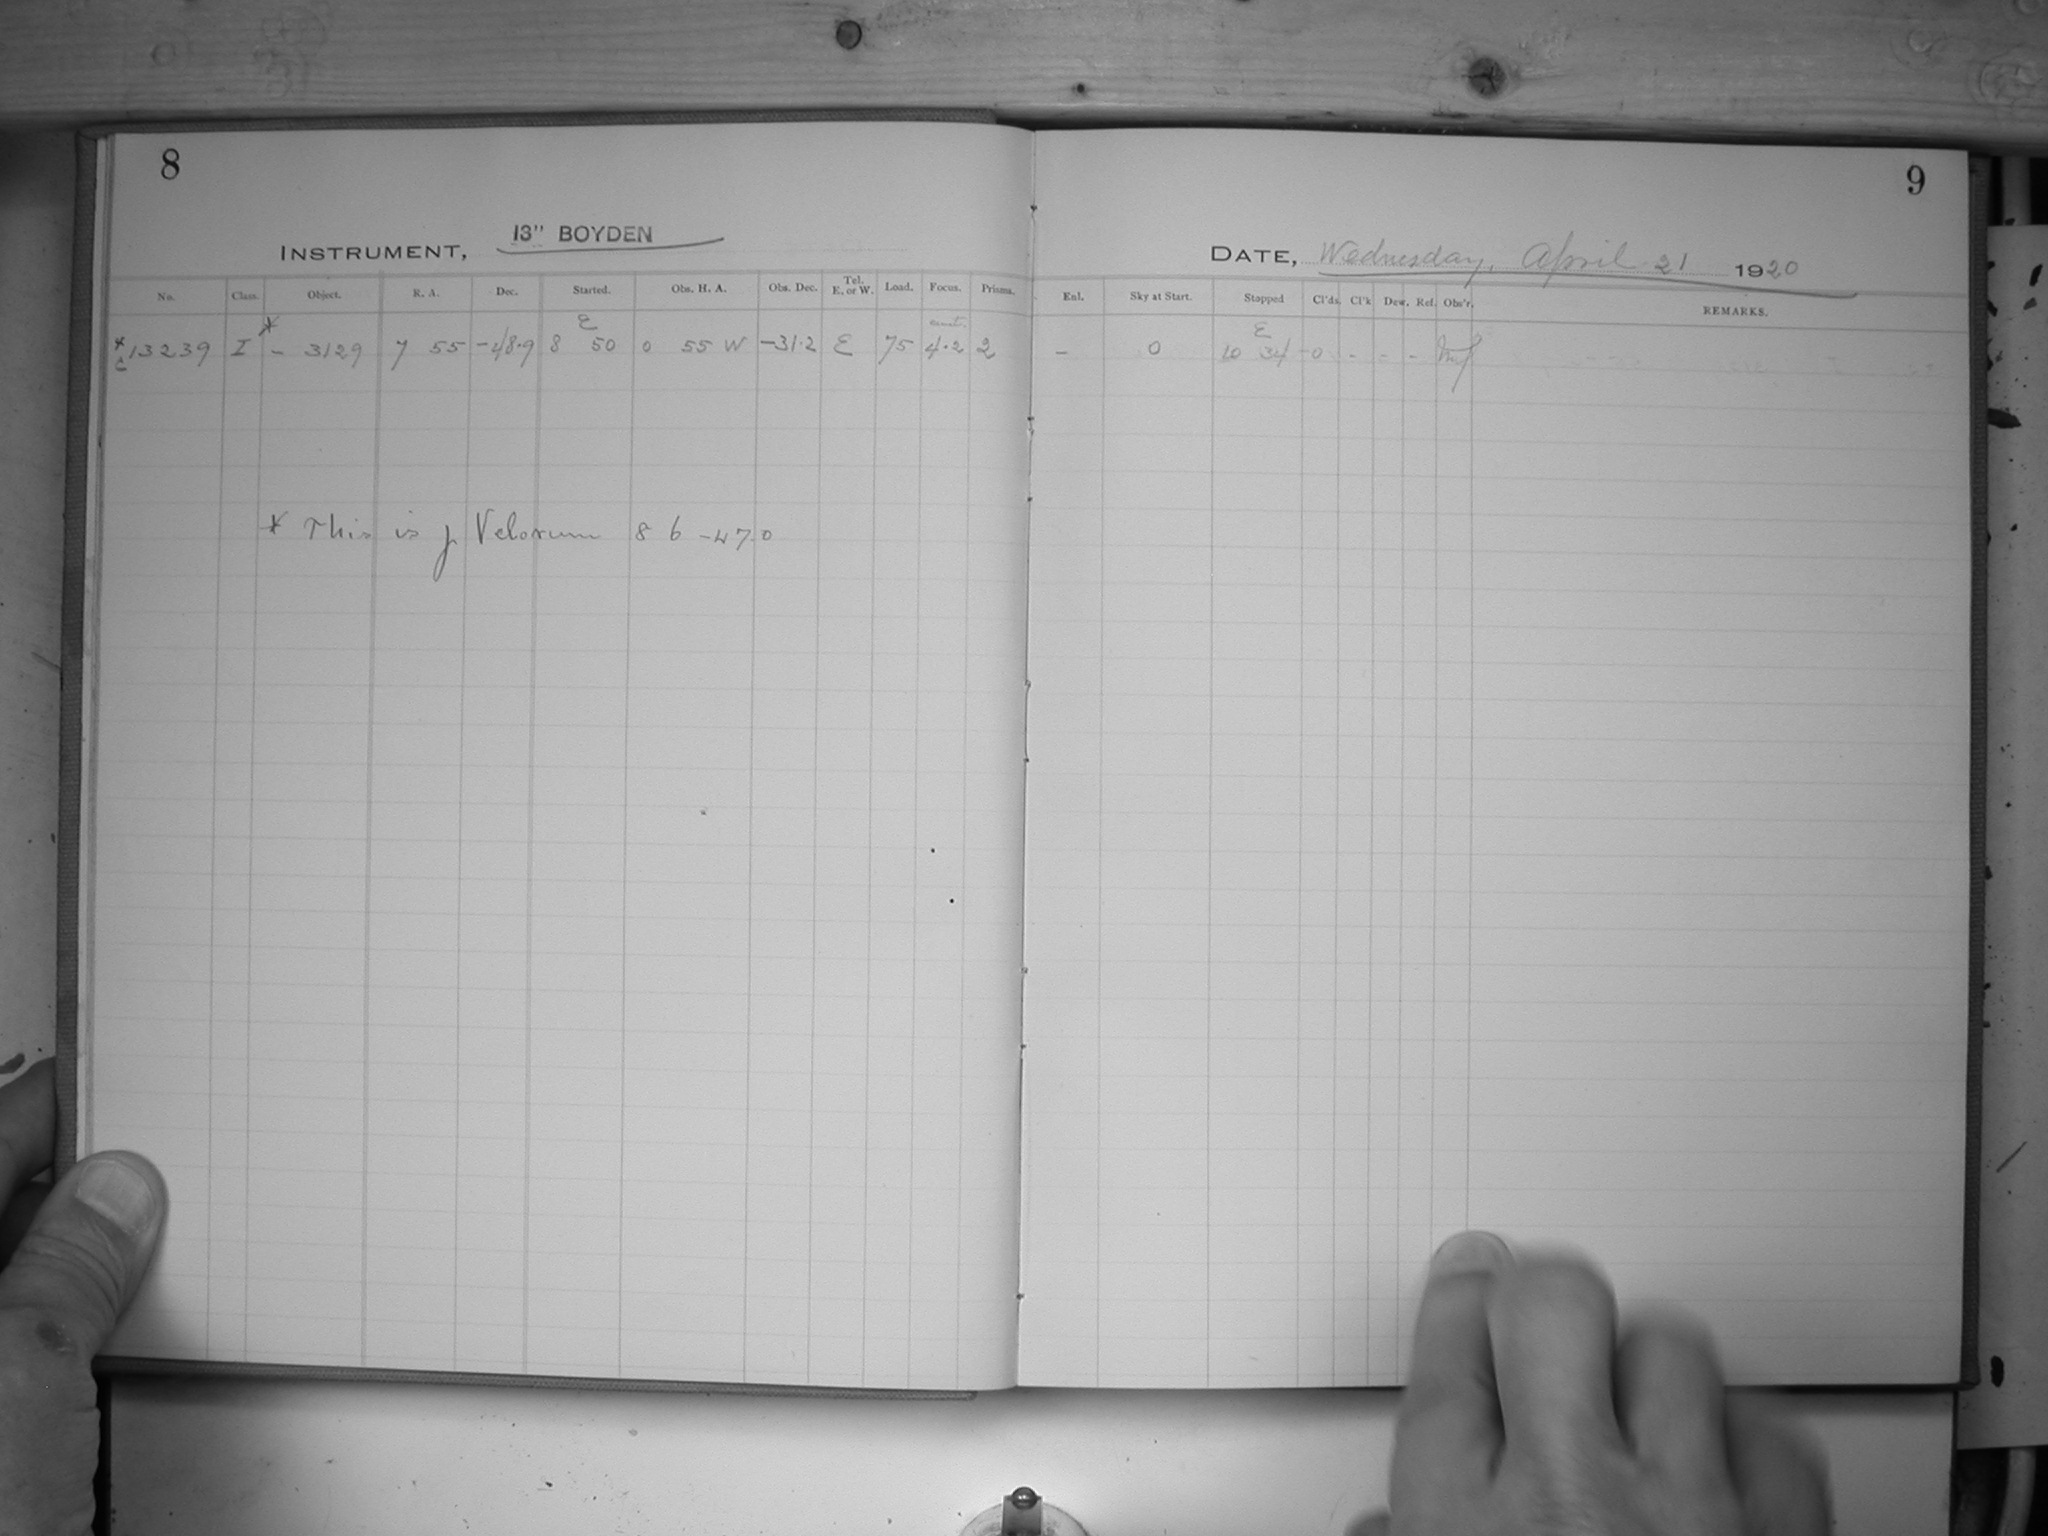 8
INSTRUMENT, 13" BOYDEN
No. Class. Object. R. A. Dec. Started. Obs. H. A. Obs. Dec. Tel. E. or W. Load. Focus. Prisms.
*c 13239 I *- 3129 7 55 -48.9 E 8 50 0 55 W -31.2 E 75 4.2 2
* This is γ Velorum 8 6 -47.0
9
DATE, Wednesday, April 21 1920
Enl. Sky at Start. Stopped Cl'ds. Cl'k Dew. Ref. Obs'r. REMARKS.
- 0 E 10 34 0 - - -